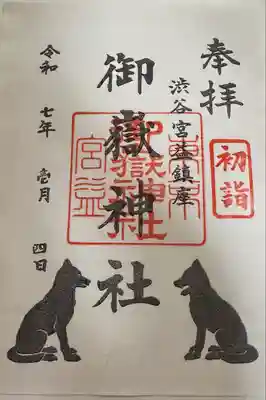 奉拝
初詣
渋谷宮益鎮座
御嶽神社
東京
御嶽神社
宮益
令和七年壱月四日